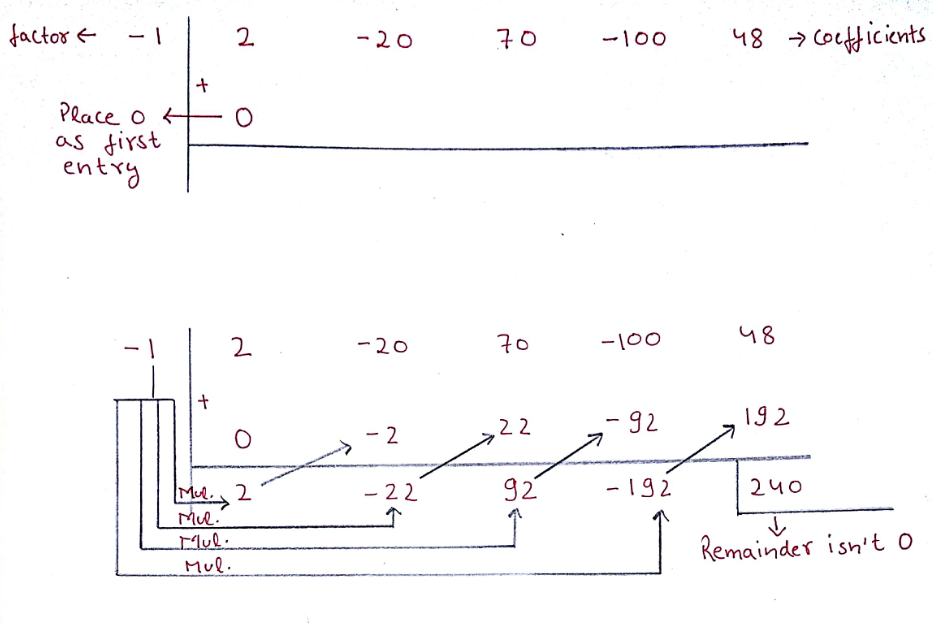 factor ← -1 2 -20 70 -100 48 → coefficients
+
Place 0 ← 0
as first
entry
-1 2 -20 70 -100 48
+
0 -2 22 -92 192
Mul. 2 -22 92 -192 240
Mul.
Mul.
Mul.
Remainder isn't 0